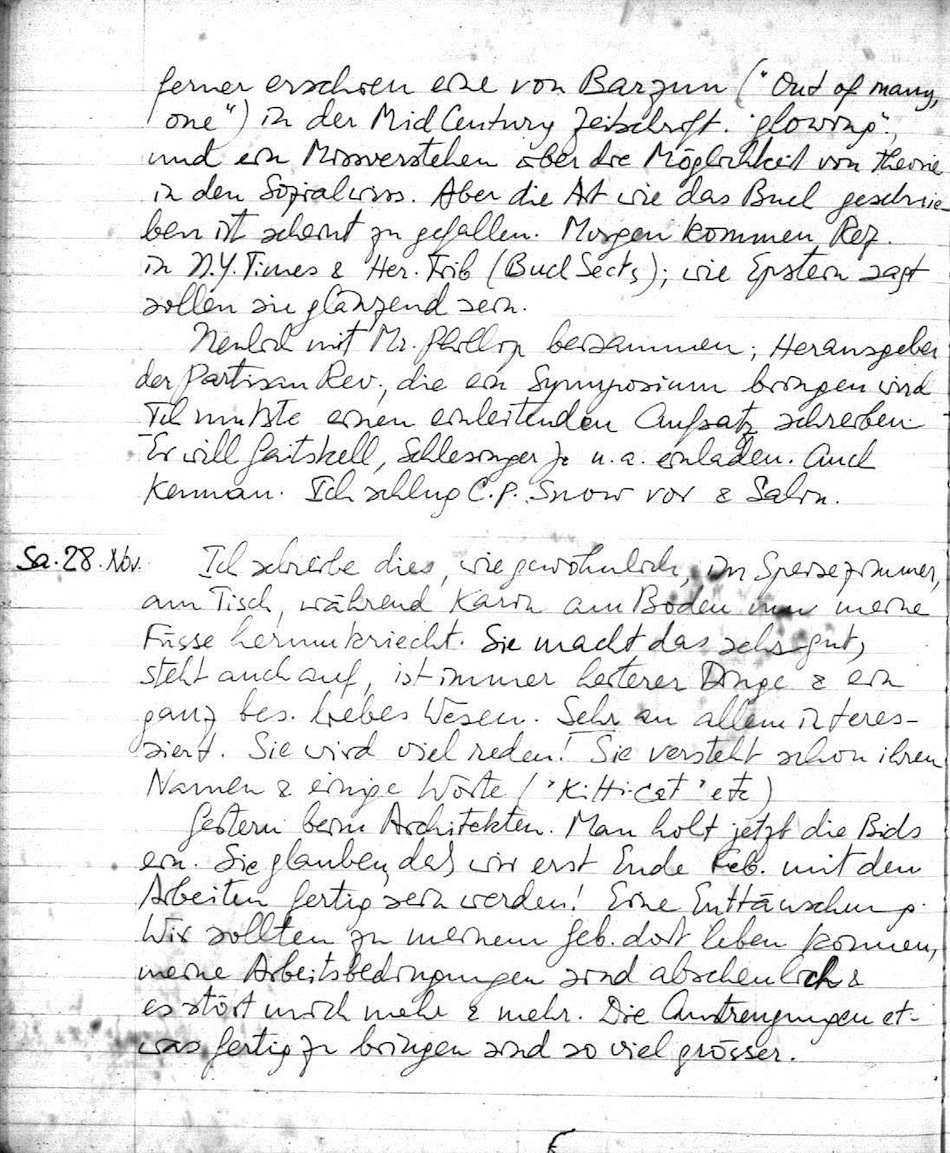 ferner erschien eine von Barzun ("Out of many,
one") in der MidCentury Zeitschrift. "glowing",
und ein Missverstehen über die Möglichkeit von Theorie
in den Sozialwiss. Aber die Art wie das Buch geschrie-
ben ist scheint zu gefallen. Morgen kommen Rez.
in N.Y. Times & Her. Trib (Buch Sects); wie Epstein sagt
sollen sie glänzend sein.
Neulich mit Mr. Phillip beisammen; Herausgeber
der Partisan Rev., die ein Symposium bringen wird
Ich müsste einen einleitenden Aufsatz schreiben.
Er will Gaitskell, Schlesinger Jr u.a. einladen. Auch
Kennan. Ich schlug C.P. Snow vor & Salin.
Sa. 28. Nov. Ich schreibe dies, wie gewöhnlich, im Speisezimmer,
am Tisch, während Karin am Boden um meine
Füsse herumkriecht. Sie macht das sehr gut,
steht auch auf, ist immer heiterer Dinge & ein
ganz bes. liebes Wesen. Sehr an allem interes-
siert. Sie wird viel reden! Sie versteht schon ihren
Namen & einige Worte ("Kitti-cat" etc)
Gestern beim Architekten. Man holt jetzt die Bids
ein. Sie glauben, daß wir erst Ende Feb. mit den
Arbeiten fertig sein werden! Eine Enttäuschung.
Wir sollten zu meinem Geb. dort leben können,
meine Arbeitsbedingungen sind abscheulich &
es stört mich mehr & mehr. Die Anstrengungen et-
was fertig zu bringen sind so viel grösser.